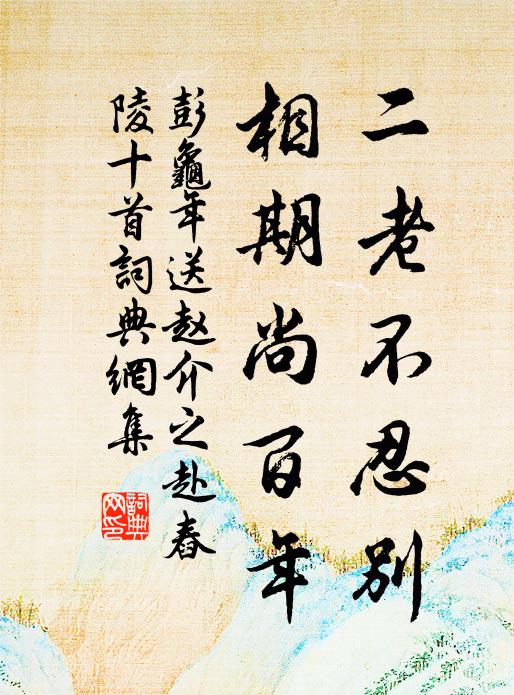 二老不忍别
相期尚百年
彭龜年送赵介之赴舂
陵十首詞典網集
詞典
网印